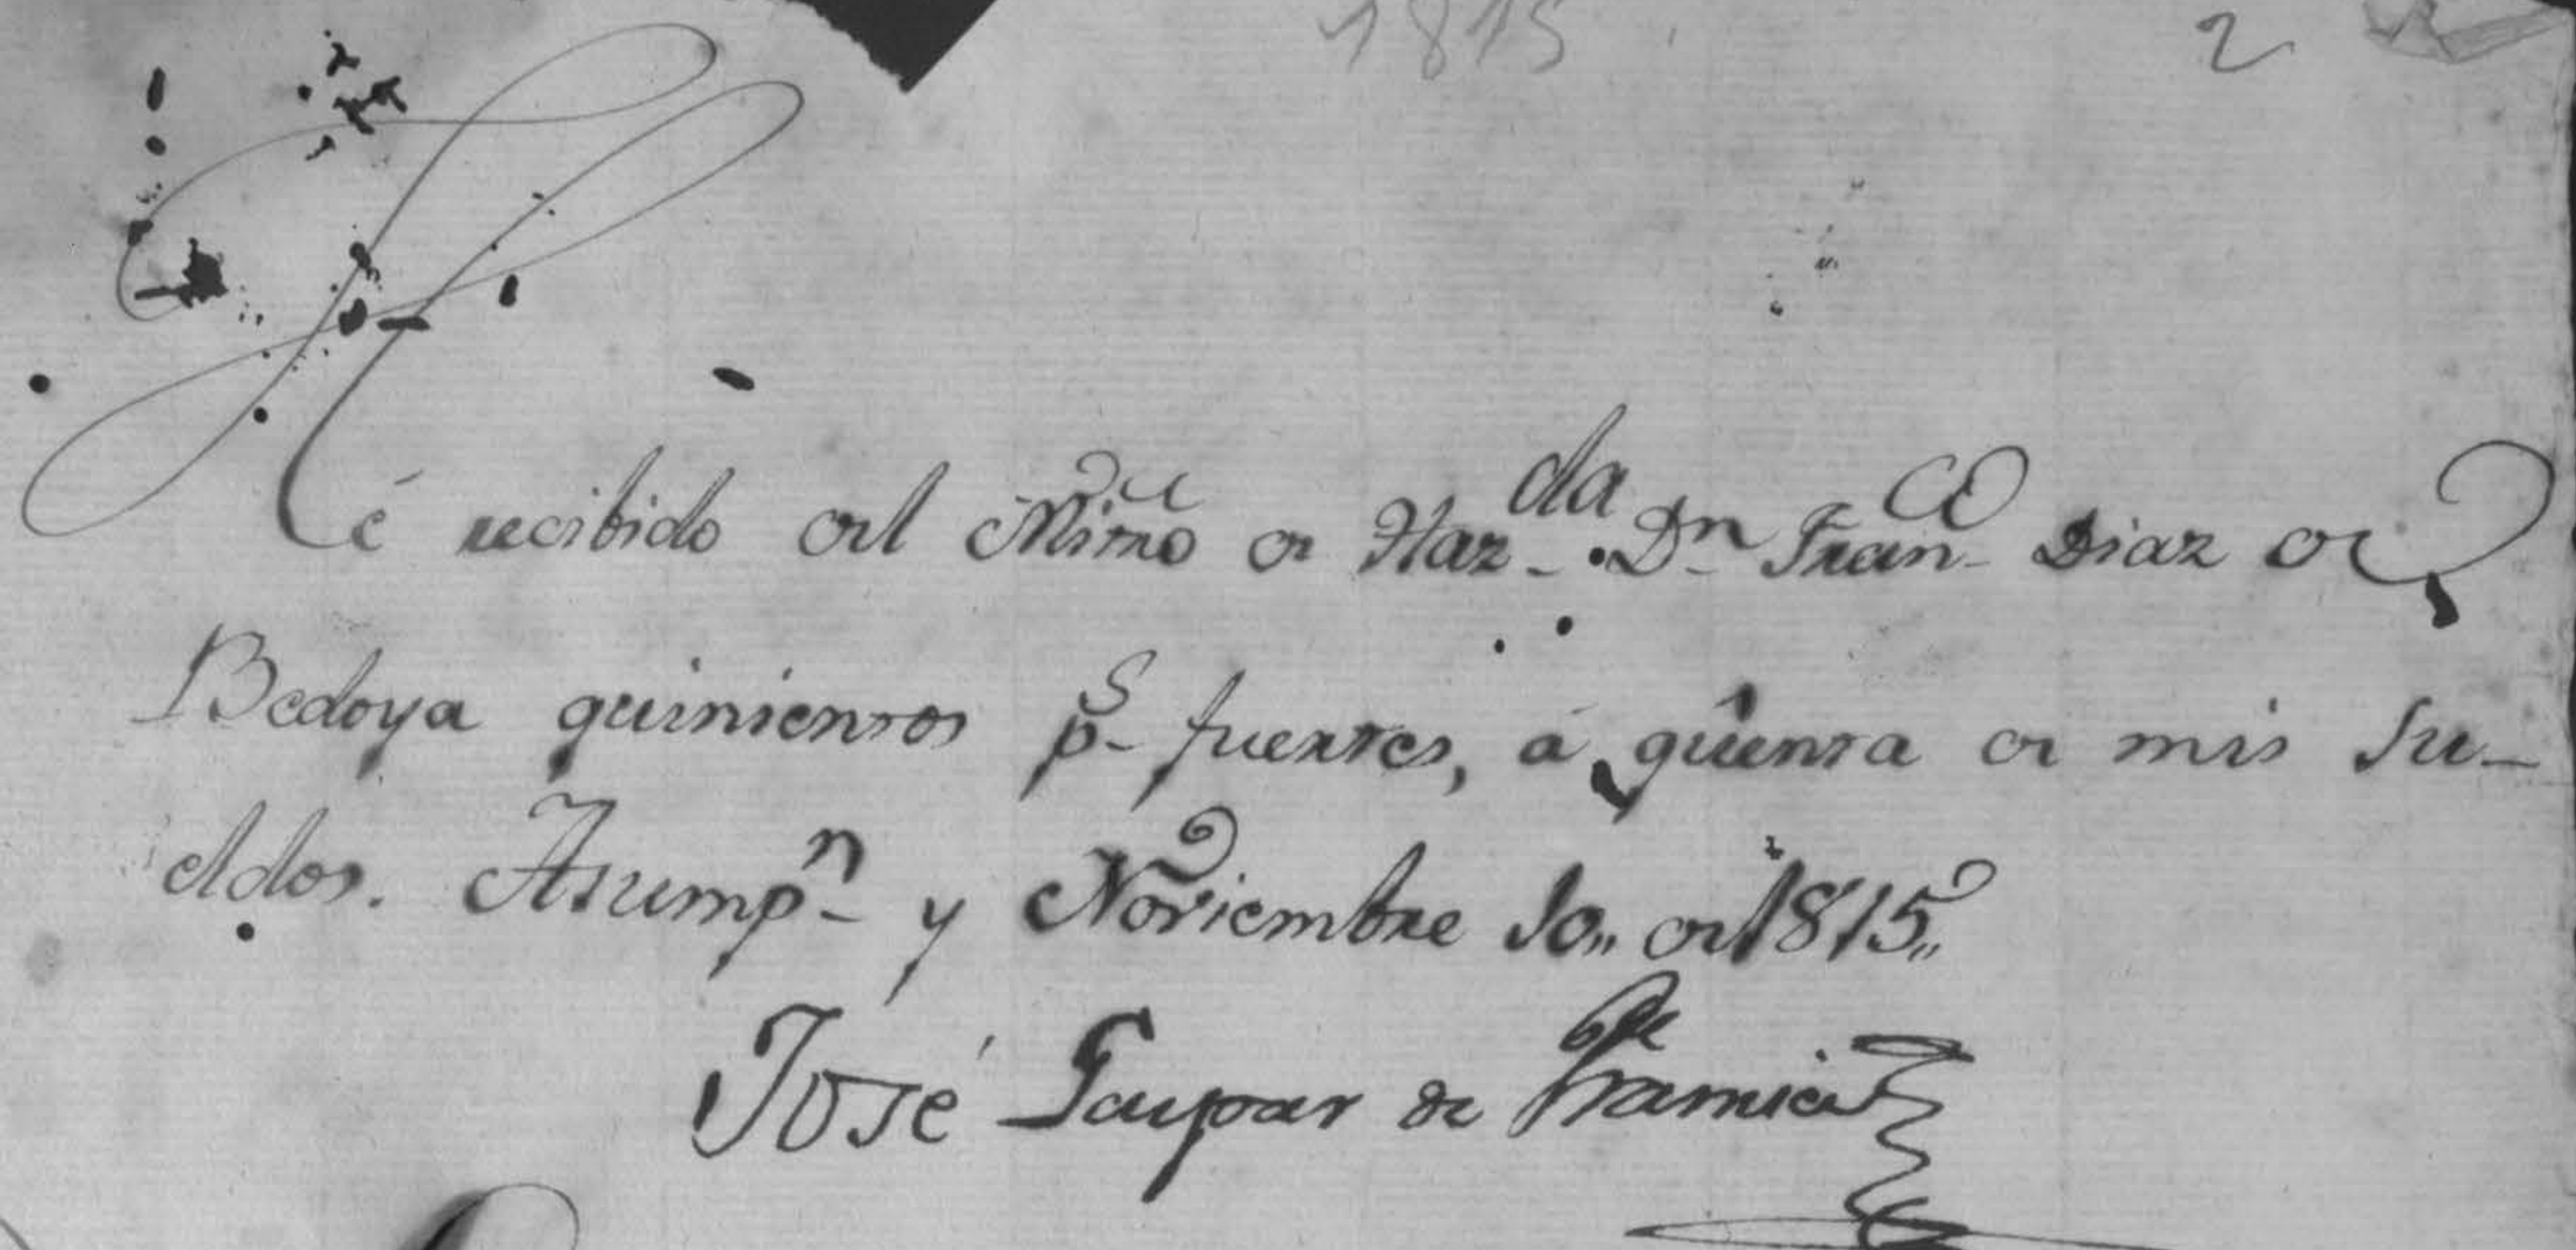 1815 2
Hé recibido del Mintro de Haz.da Dn Franco Diaz de
Bedoya quinientos ps fuertes, á qüenta de mis Su-
eldos. Asumpn y Noviembre 10,, de 1815,,
José Gaspar de Francia